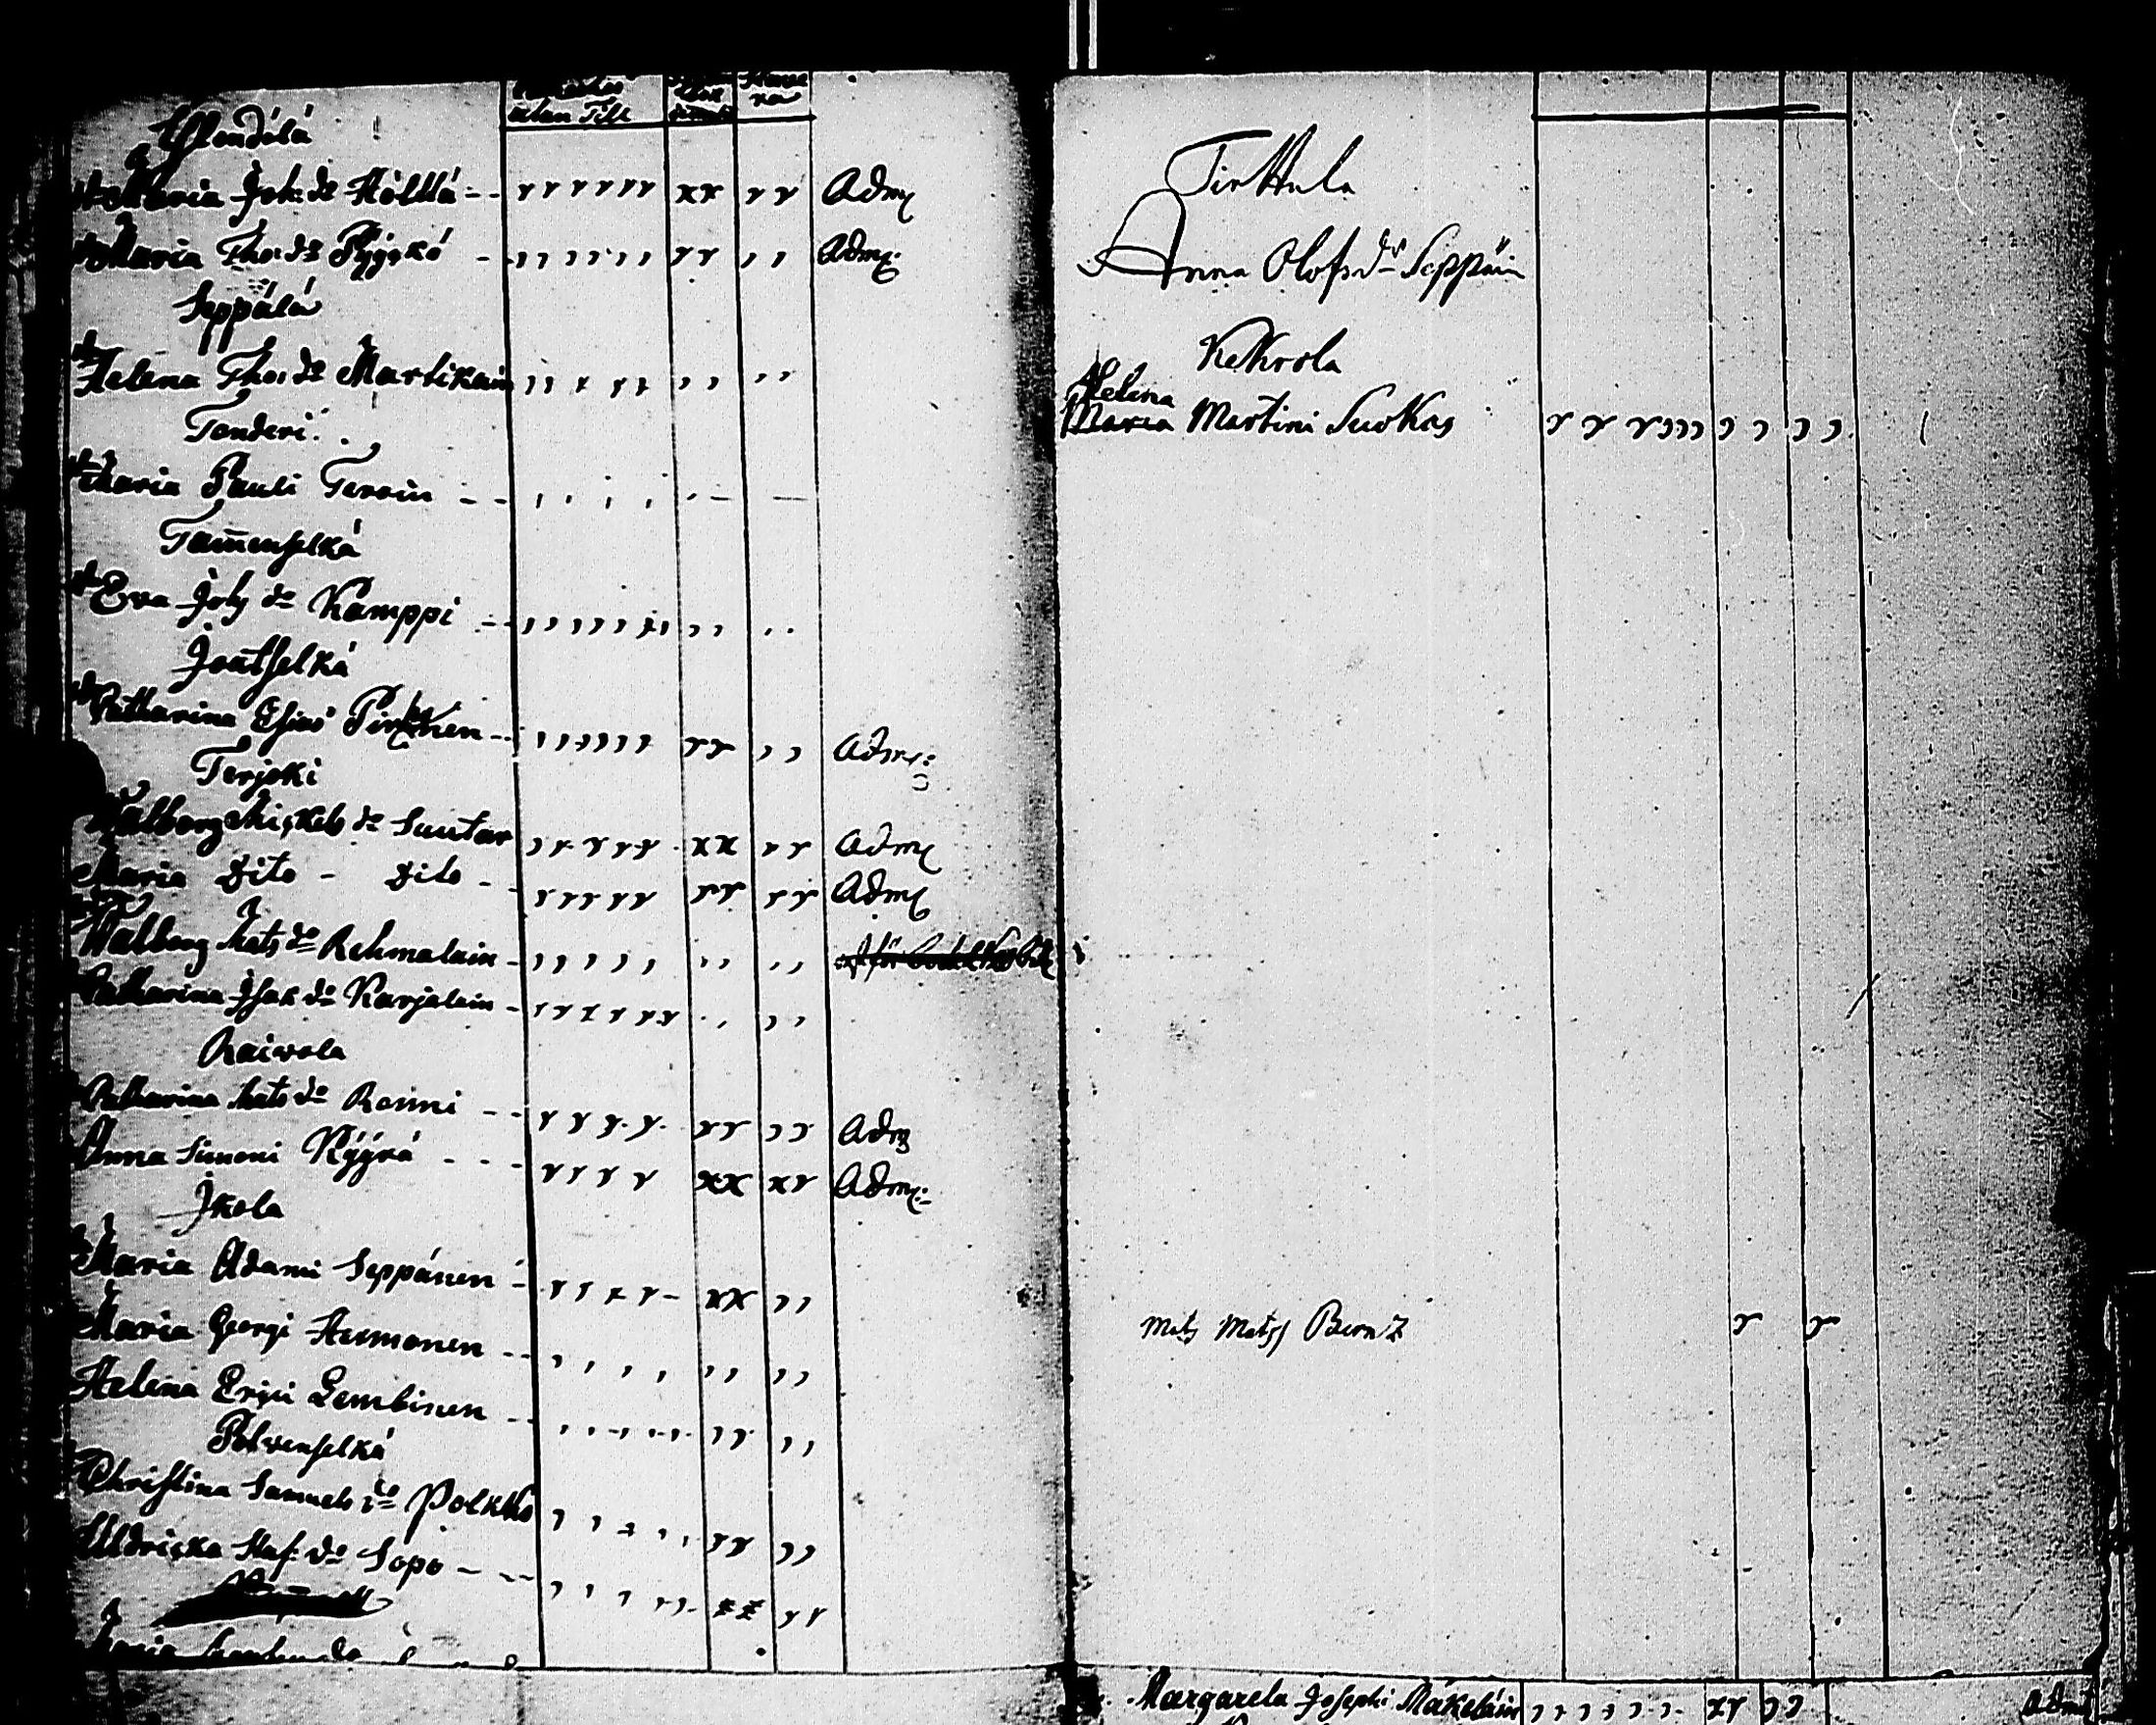 utan Till
Maria Joh: dr Hölttä
Adm
Maria Tho: dr Pyykkö
Adm:
Seppälä
Helena Tho: dr Martikain
Tonderi
Maria Pauli Tervin
Tam̄enselkä
Eva Joh dr Kamppi
Joutselkä
Catharina Esias
Adm:
Terjoki
Walborg Mickels dr Suutar
Adm
Maria Dito - Dito
Adm
Walborg Mats dr Rehmalain
Catharina Isak dr Karjalain
Raivola
Catharina Mats dr Roinni
Adm
Anna Simoni Nyyrä
Adm:
Ikola
Maria Adami Seppänen
Maria Georgi Hermonen
Helena Erici Lembinen
Polvenselkä
Christina Samuels dr Polkko
Uldricka Staf: dr Sopo
Maria
Tirttula
Anna Olofs dr Seppäin
Kekrola
Helena
Maria Martini Suokas
Mats Matss Berntz
Margareta Josephi Mäkeläin
Adm